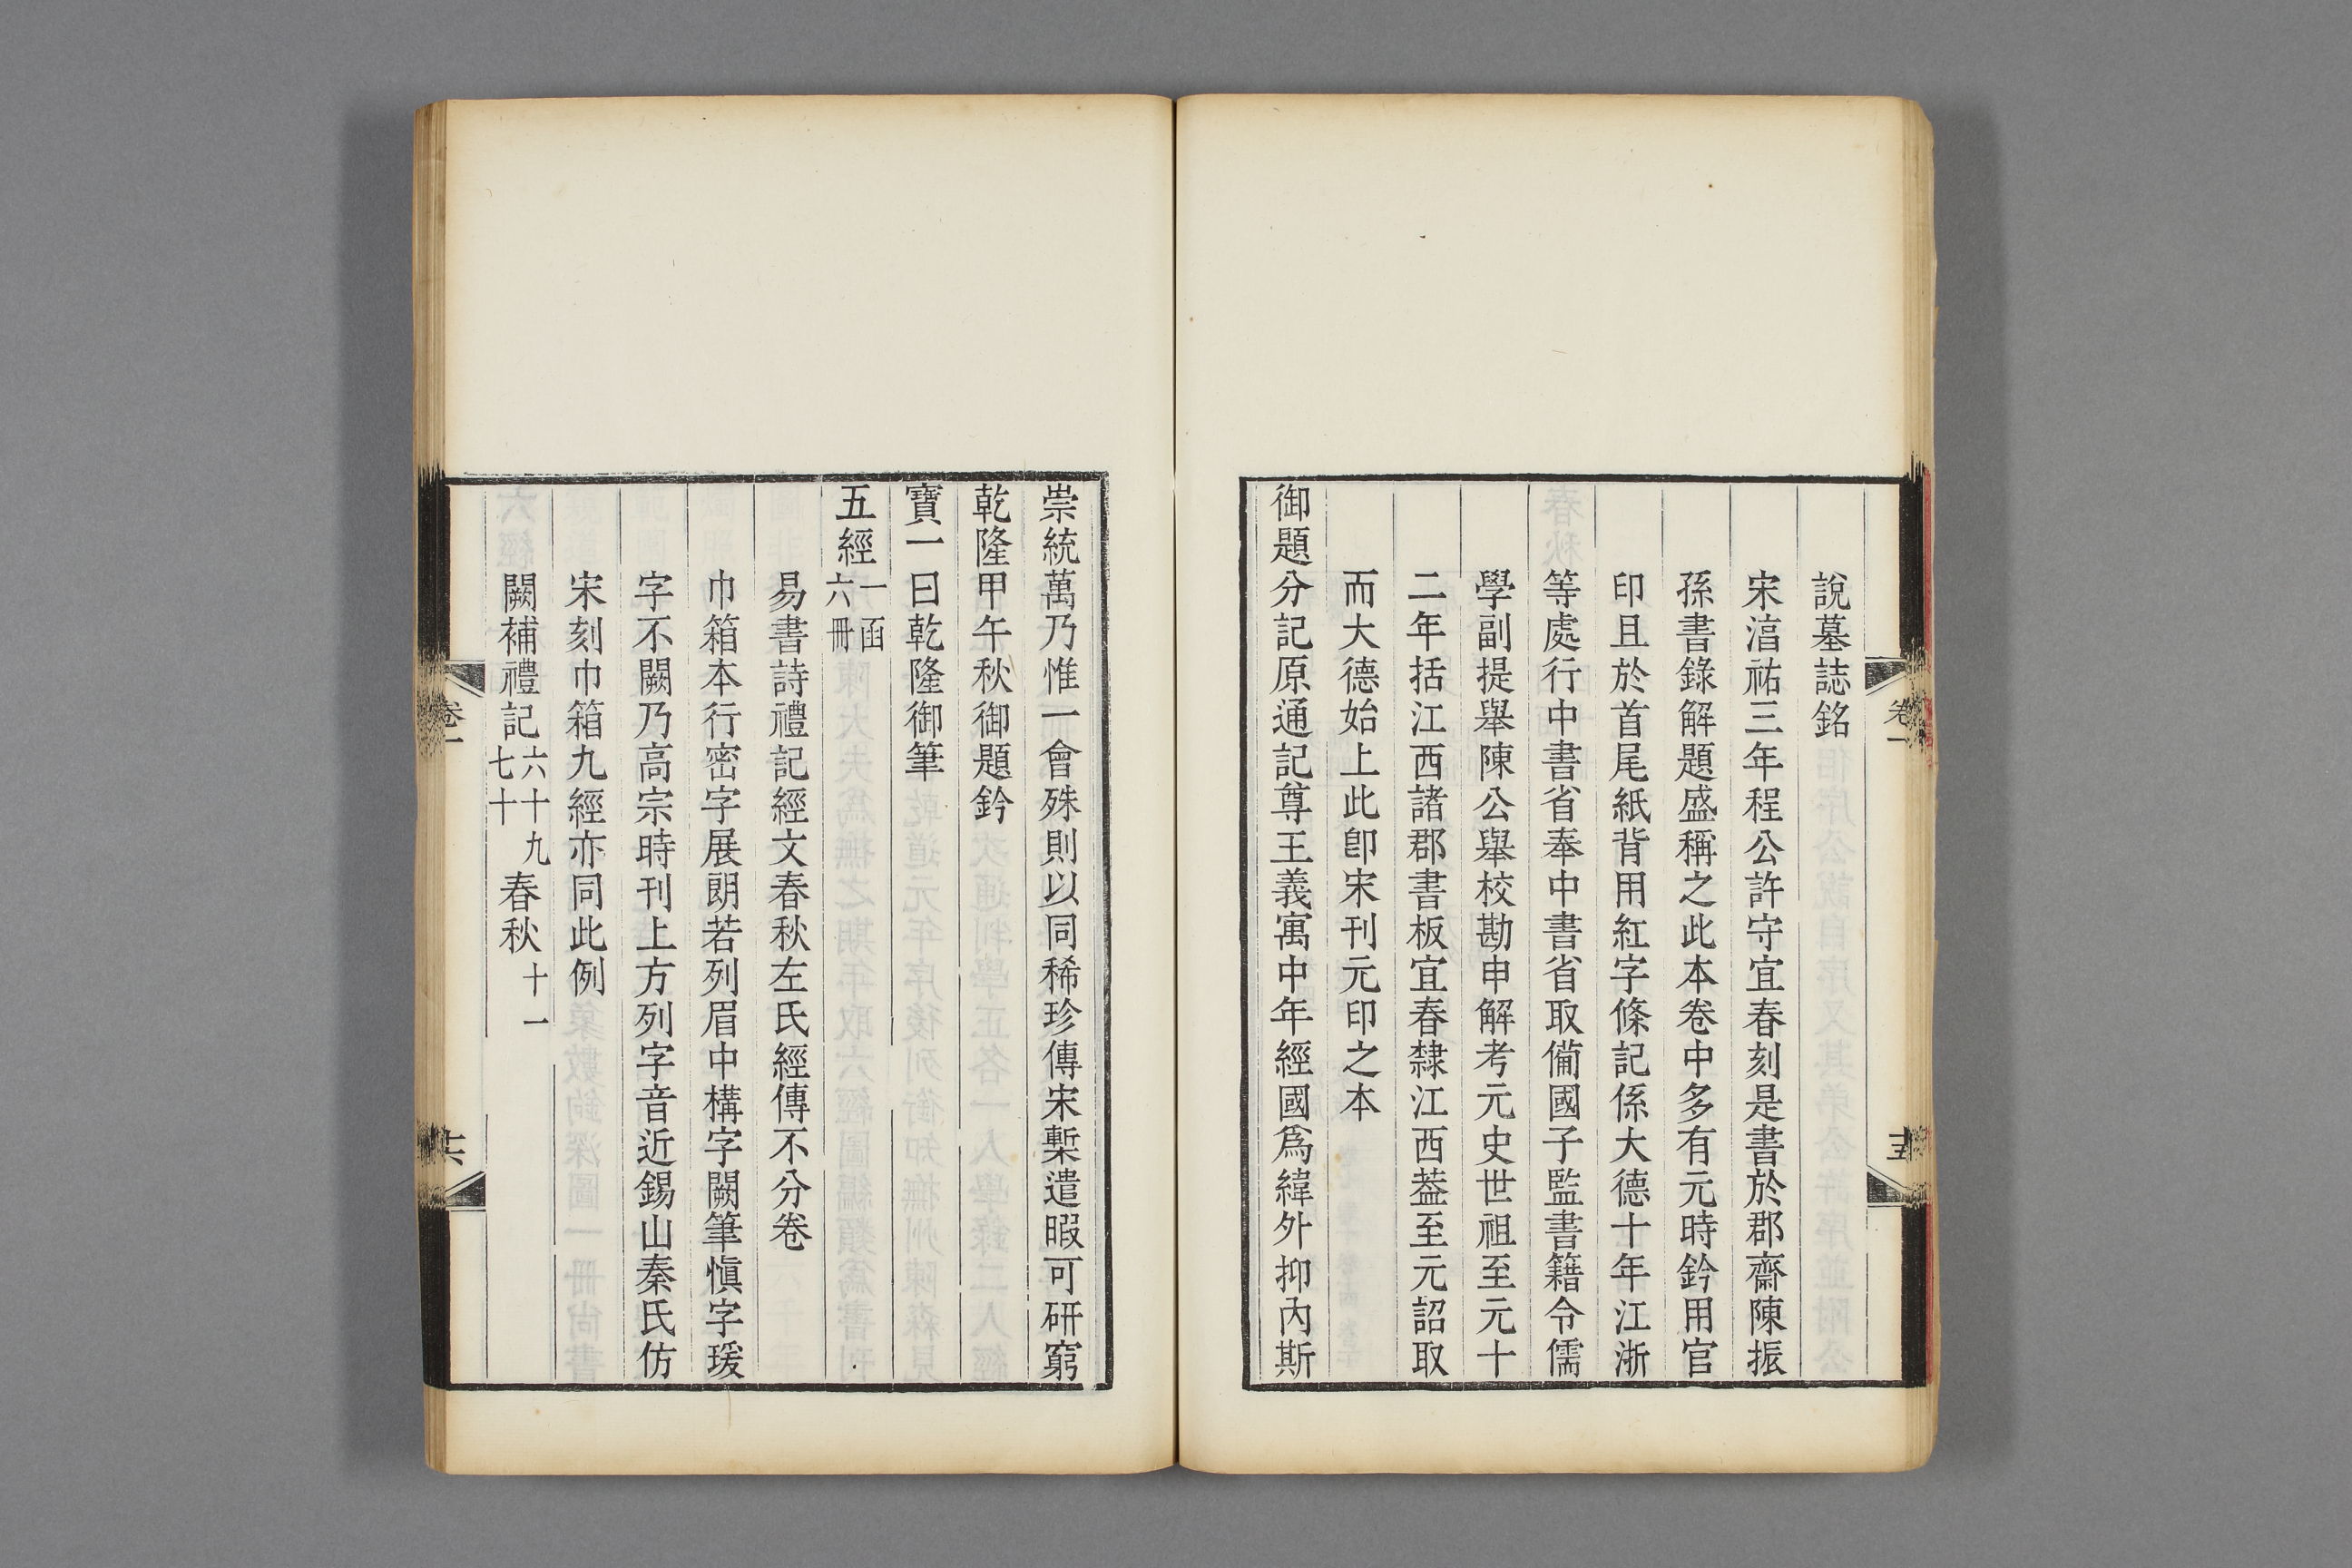 說墓誌銘
宋湻祐三年程公許守宜春刻是書於郡齋陳振
孫書錄解題盛稱之此本卷中多有元時鈐用官
印且於首尾紙背用紅字條記係大德十年江浙
等處行中書省奉中書省取僃國子監書籍令儒
學副提舉陳公舉校勘申解考元史世祖至元十
二年括江西諸郡書板宜春隸江西葢至元詔取
而大德始上此卽宋刊元印之本
御題分記原通記尊王義寓中年經國爲緯外抑內斯
崇統萬乃惟一會殊則以同稀珍傳宋槧遣暇可研窮
乾隆甲午秋御題鈐
寶一曰乾隆御筆
五經一函六冊
易書詩禮記經文春秋左氏經傳不分卷
巾箱本行密字展朗若列眉中構字闕筆愼字瑗
字不闕乃高宗時刊上方列字音近錫山秦氏仿
宋刻巾箱九經亦同此例
闕補禮記六十九七十春秋十一
卷一
十六
卷一
十五